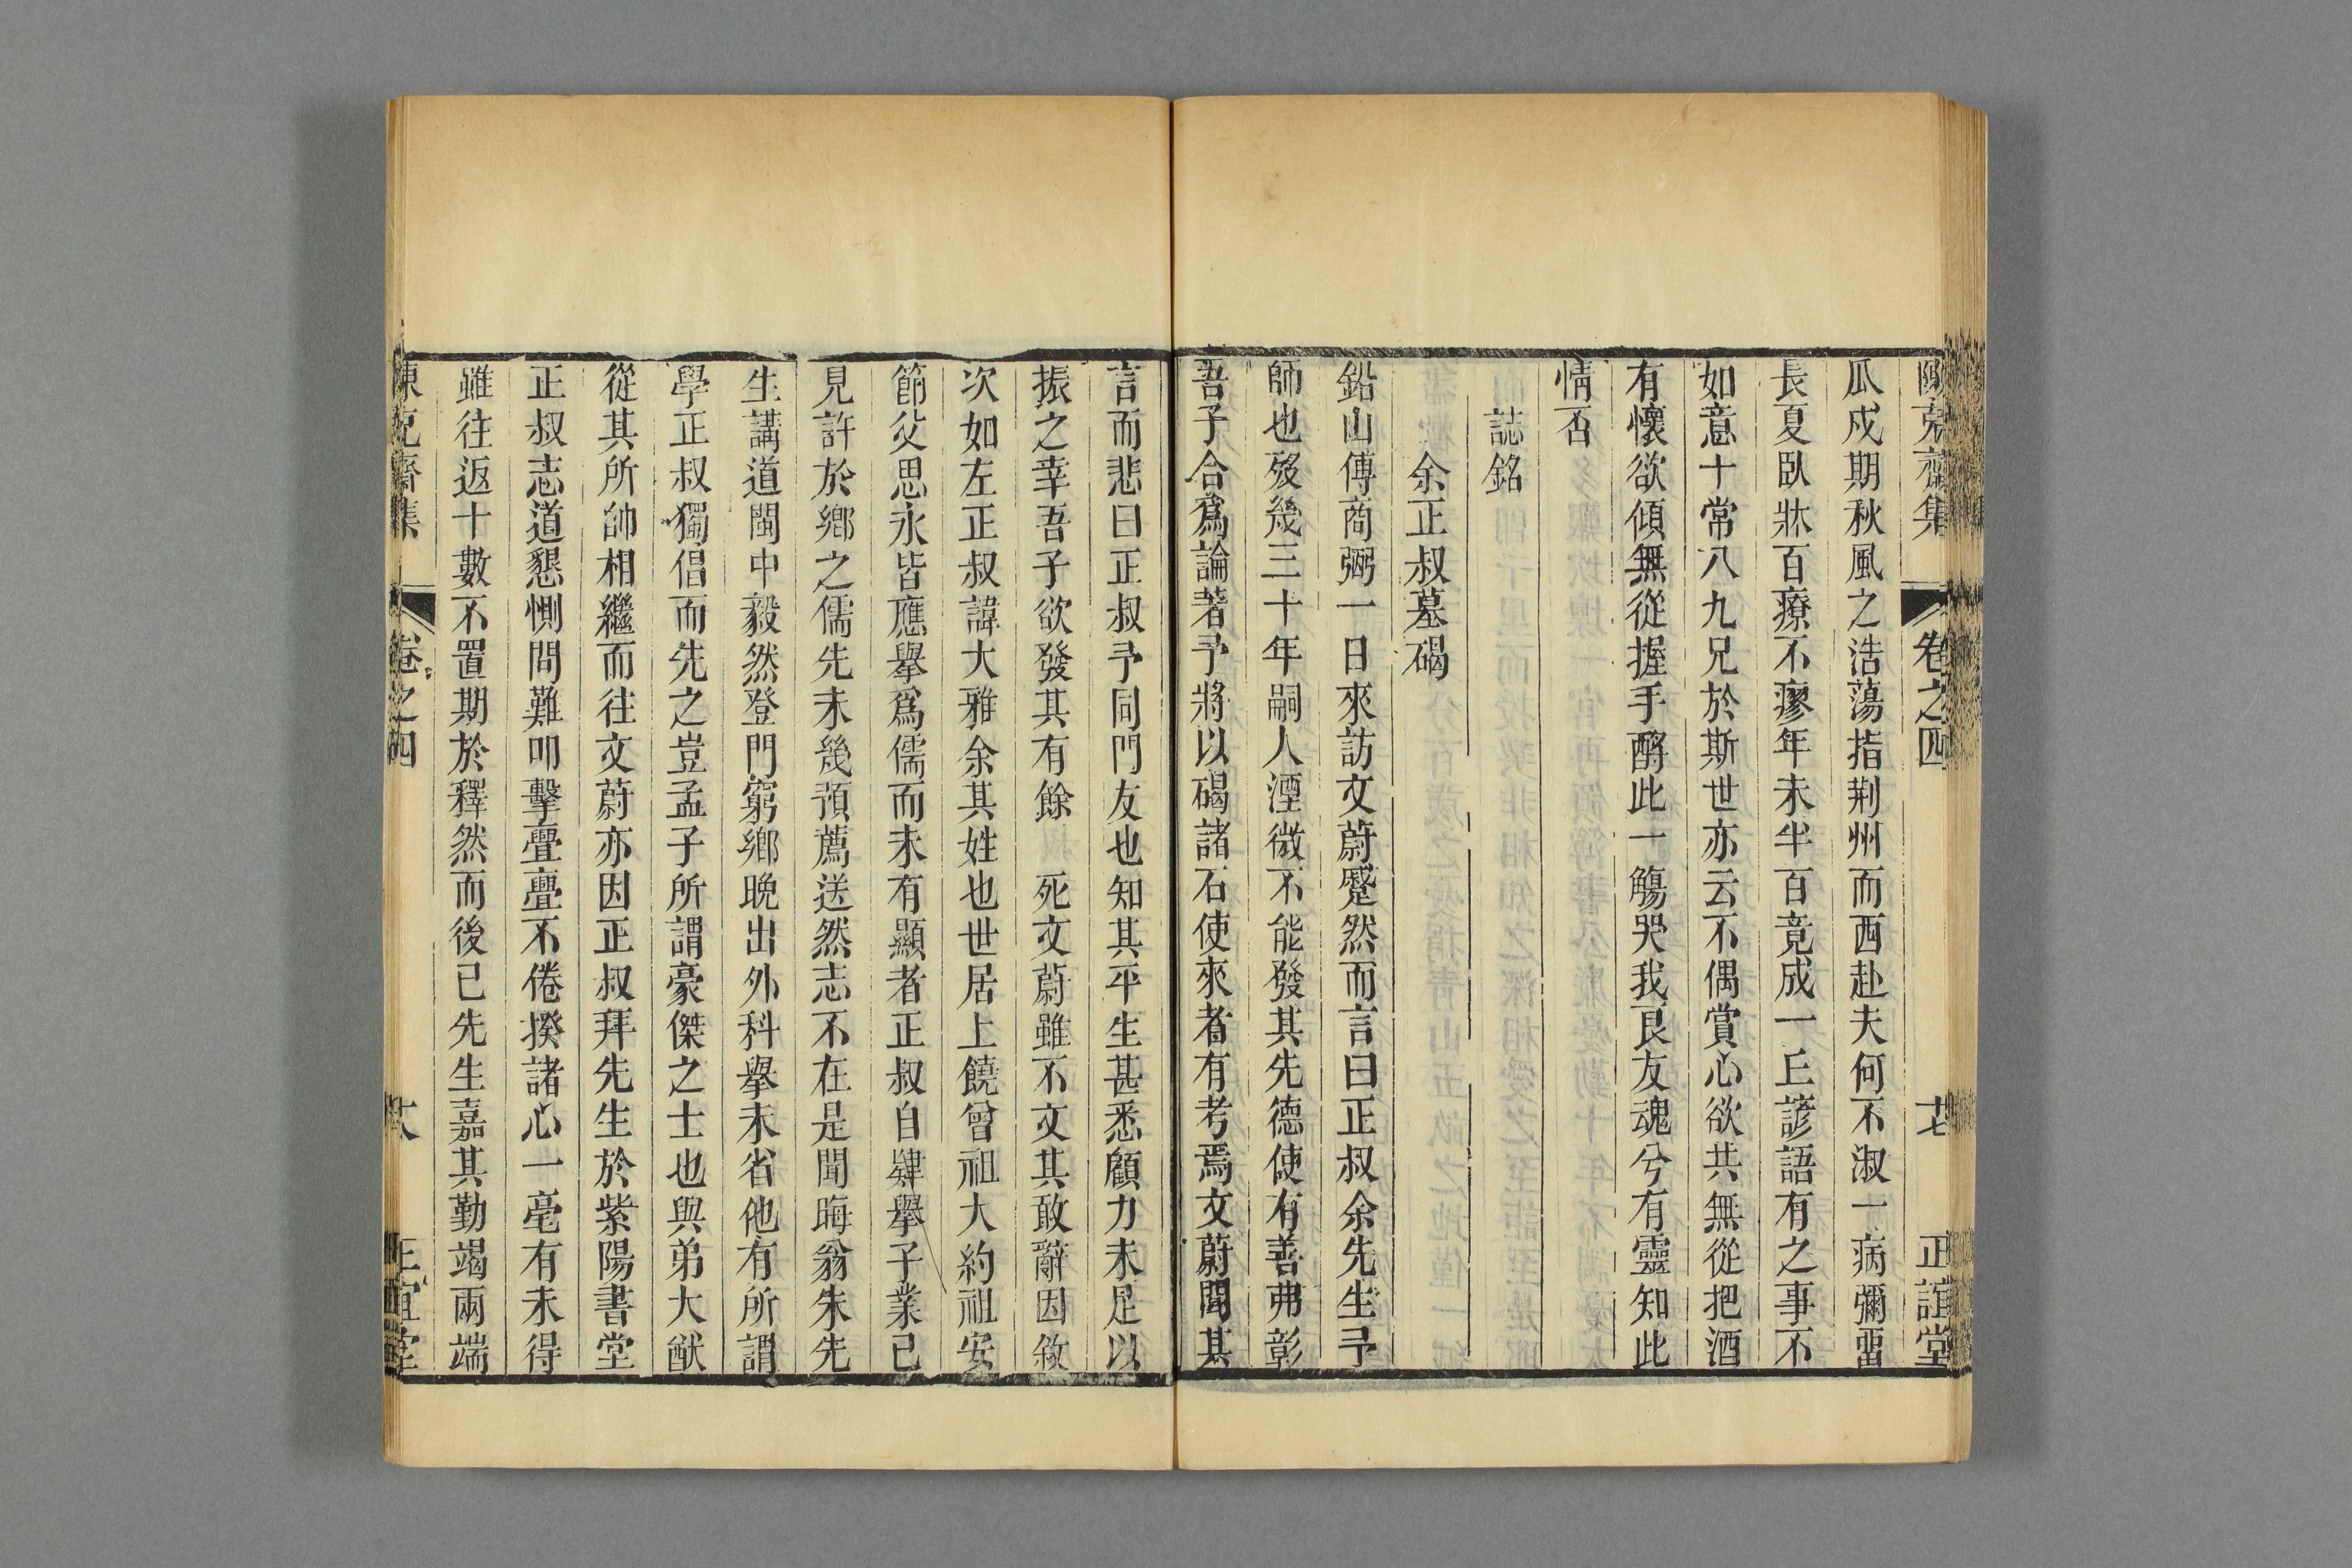 陳克齋集 卷之四 十七 正誼堂
瓜戍期秋風之浩蕩指荆州而西赴夫何不淑一病彌畱
長夏臥牀百療不瘳年未半百竟成一丘諺語有之事不
如意十常八九兄於斯世亦云不偶賞心欲共無從把酒
有懷欲傾無從握手酹此一觴哭我良友魂兮有靈知此
情否
誌銘
余正叔墓碣
鉛山傅商弼一日來訪文蔚蹙然而言曰正叔余先生予
師也歿幾三十年嗣人湮微不能發其先德使有善弗彰
吾子合爲論著予將以碣諸石使來者有考焉文蔚聞其
言而悲曰正叔予同門友也知其平生甚悉顧力未足以
振之幸吾子欲發其有餘 死文蔚雖不文其敢辭因敘
次如左正叔諱大雅余其姓也世居上饒曾祖大約祖安
節父思永皆應舉爲儒而未有顯者正叔自肄舉子業已
見許於鄉之儒先未幾預薦送然志不在是聞晦翁朱先
生講道閩中毅然登門窮鄉晚出外科舉未省他有所謂
學正叔獨倡而先之豈孟子所謂豪傑之士也與弟大猷
從其所帥相繼而往文蔚亦因正叔拜先生於紫陽書堂
正叔志道懇惻問難叩擊亹亹不倦揆諸心一毫有未得
雖往返十數不置期於釋然而後已先生嘉其勤竭兩端
陳克齋集 卷之四 十八 正誼堂